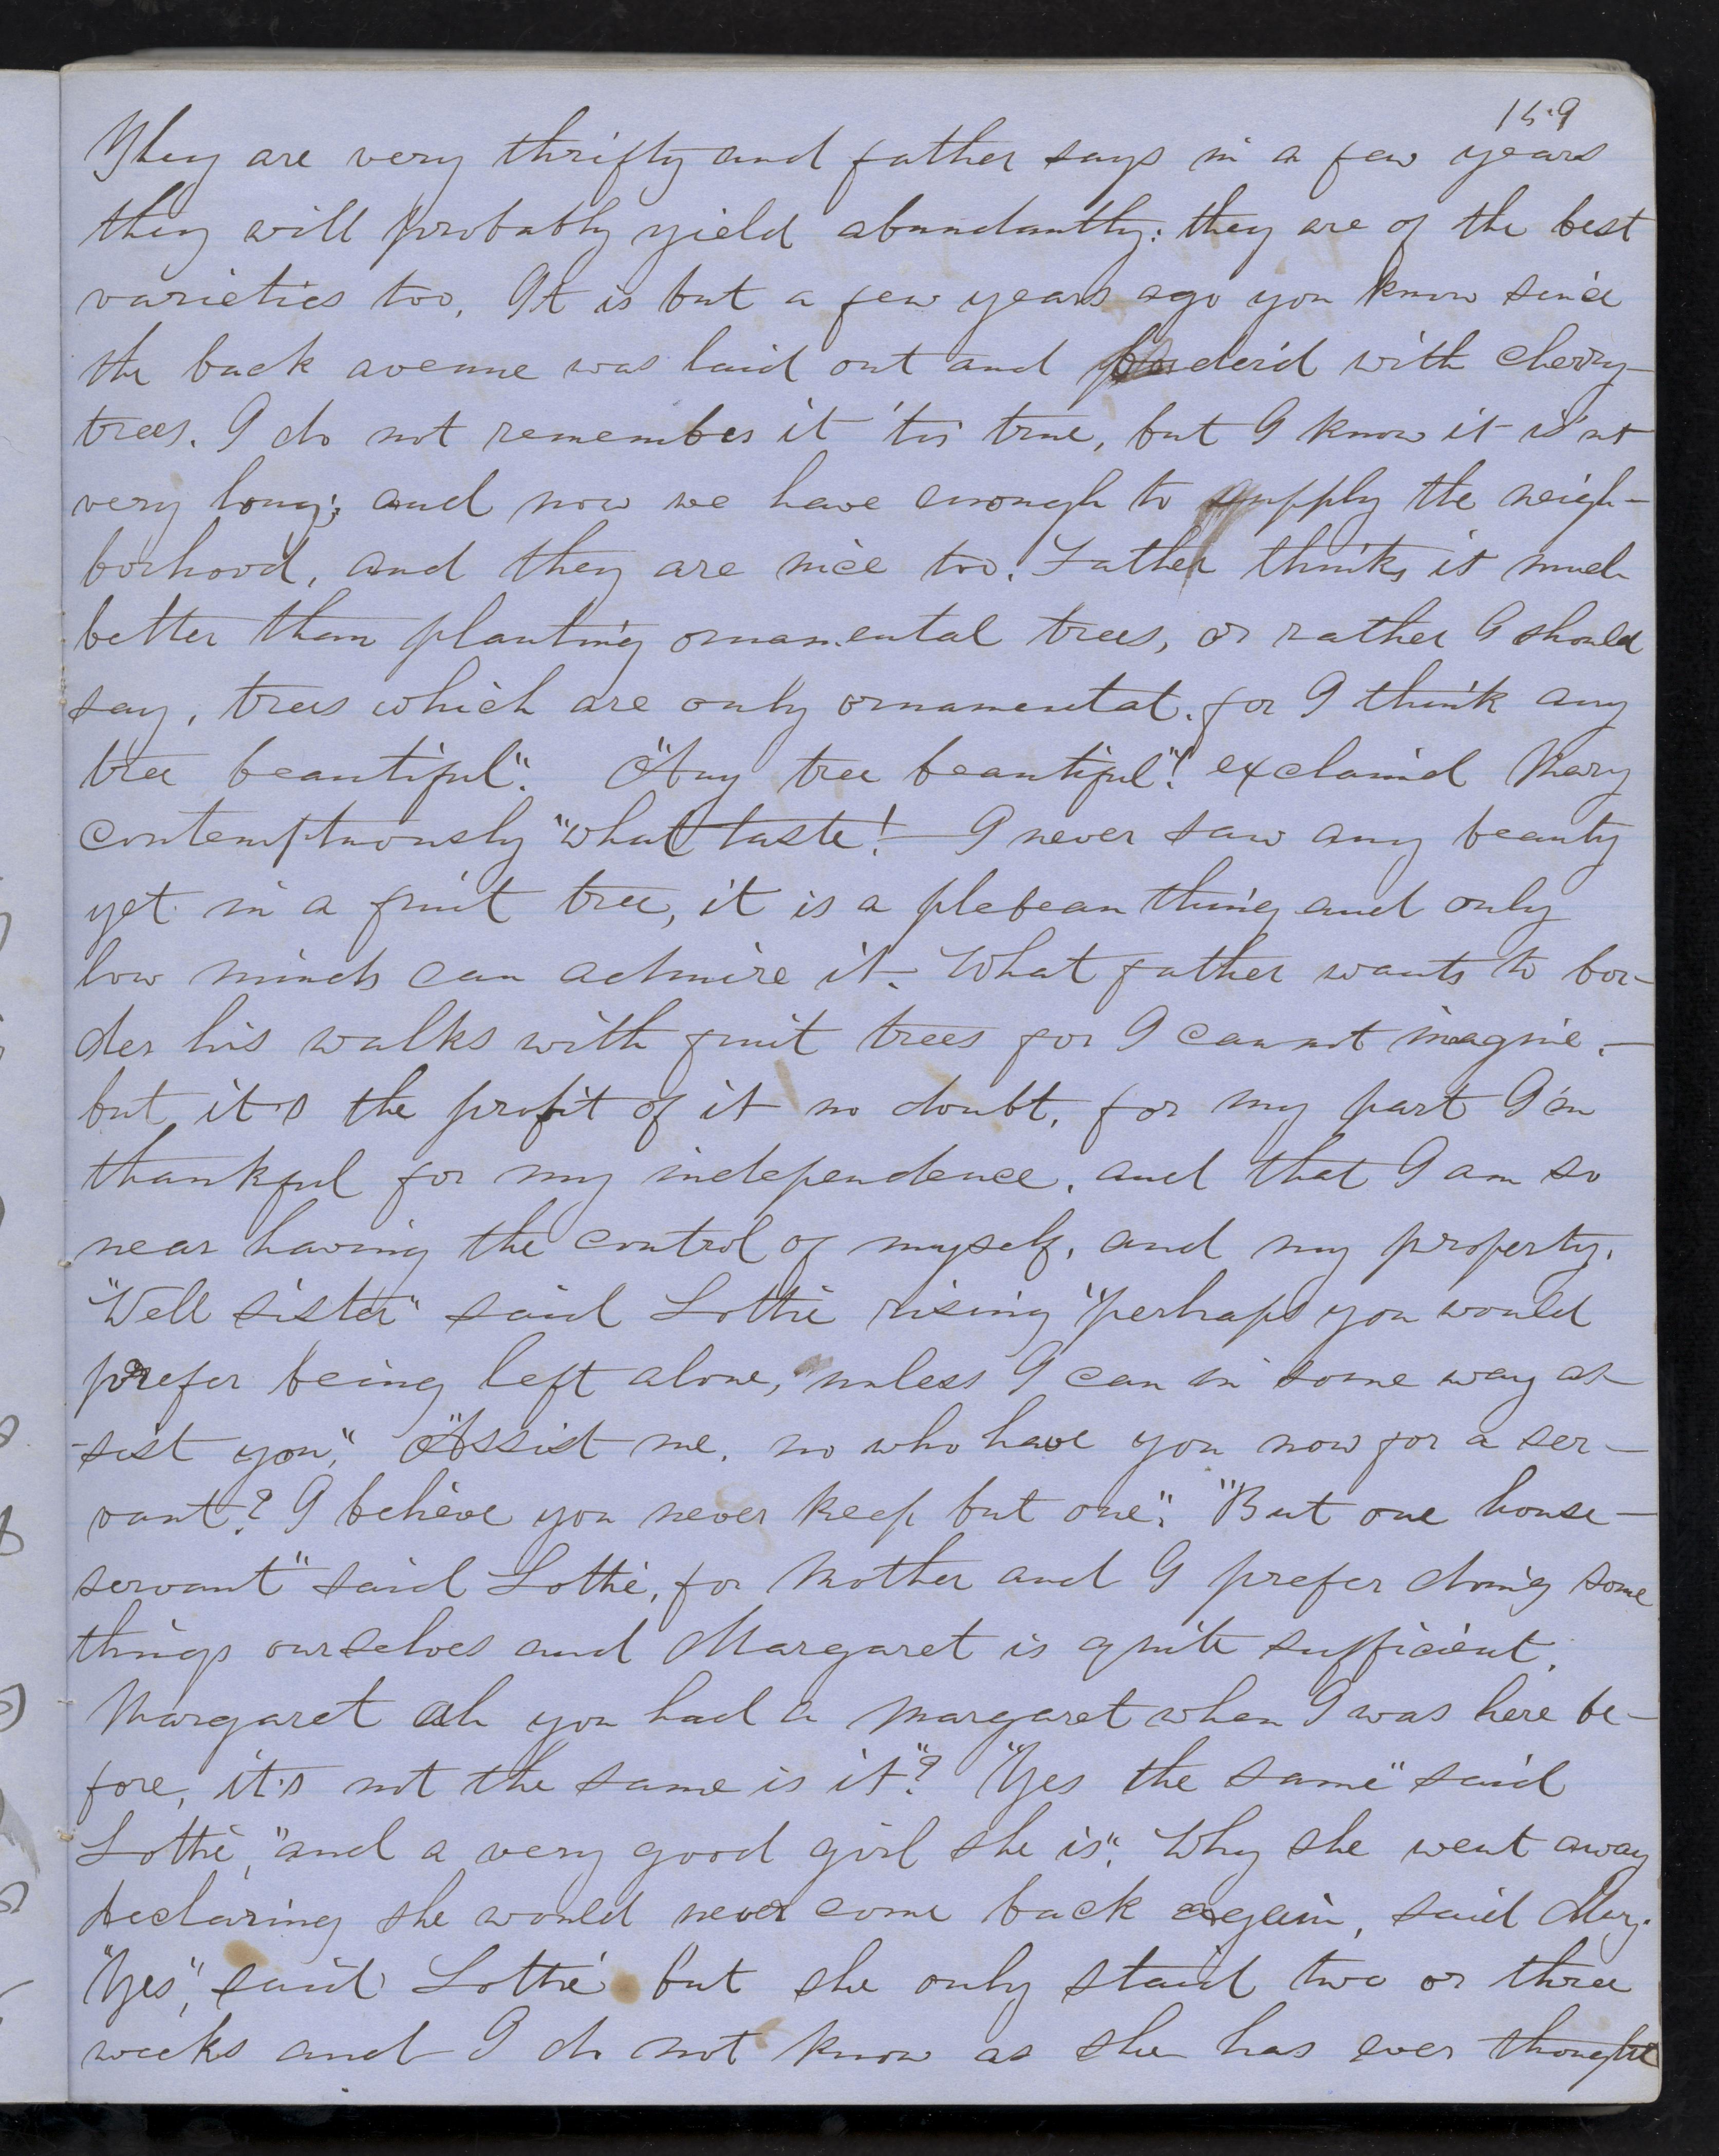 159
They are very thrifty and father says in a few years
they will probably yield abundantly: they are of the best
varieties too. It is but a few years ago you know since
the back avenue was laid out and borderd with cherry
trees. I do not remember it 'tis true, but I know it is'nt
very long; and now we have enough to supply the neigh-
borhood, and they are nice too. Father thinks it much
better than planting ornamental trees, or rather I should
say, trees which are only ornamental. for I think any
tree beautiful". "Any tree beautiful"! exclaim'd Mary
contemptuously "what taste! I never saw any beauty
yet in a fruit tree, it is a plebean thing and only
low minds can admire it. What father wants to bor-
der his walks with fruit trees for I cannot imagine.
but it's the profit of it no doubt, for my part I'm
thankful for my independence, and that I am so
near having the control of myself, and my property.
"Well sister" said Lottie rising "perhaps you would
prefer being left alone, unless I can in some way as
-sist you," "Assist me, no who have you now for a ser-
vant? I believe you never keep but one". "But one house-
servant" said Lottie, for Mother and I prefer doing some
things ourselves and Margaret is quite sufficient.
Margaret ah you had a Margaret when I was here be-
fore, it's not the same is it"? "Yes the same" said
Lottie, "and a very good girl she is". Why she went away
declaring she would never come back again, said Mary.
"Yes", said Lottie but she only staid two or three
weeks and I do not know as she has ever thought